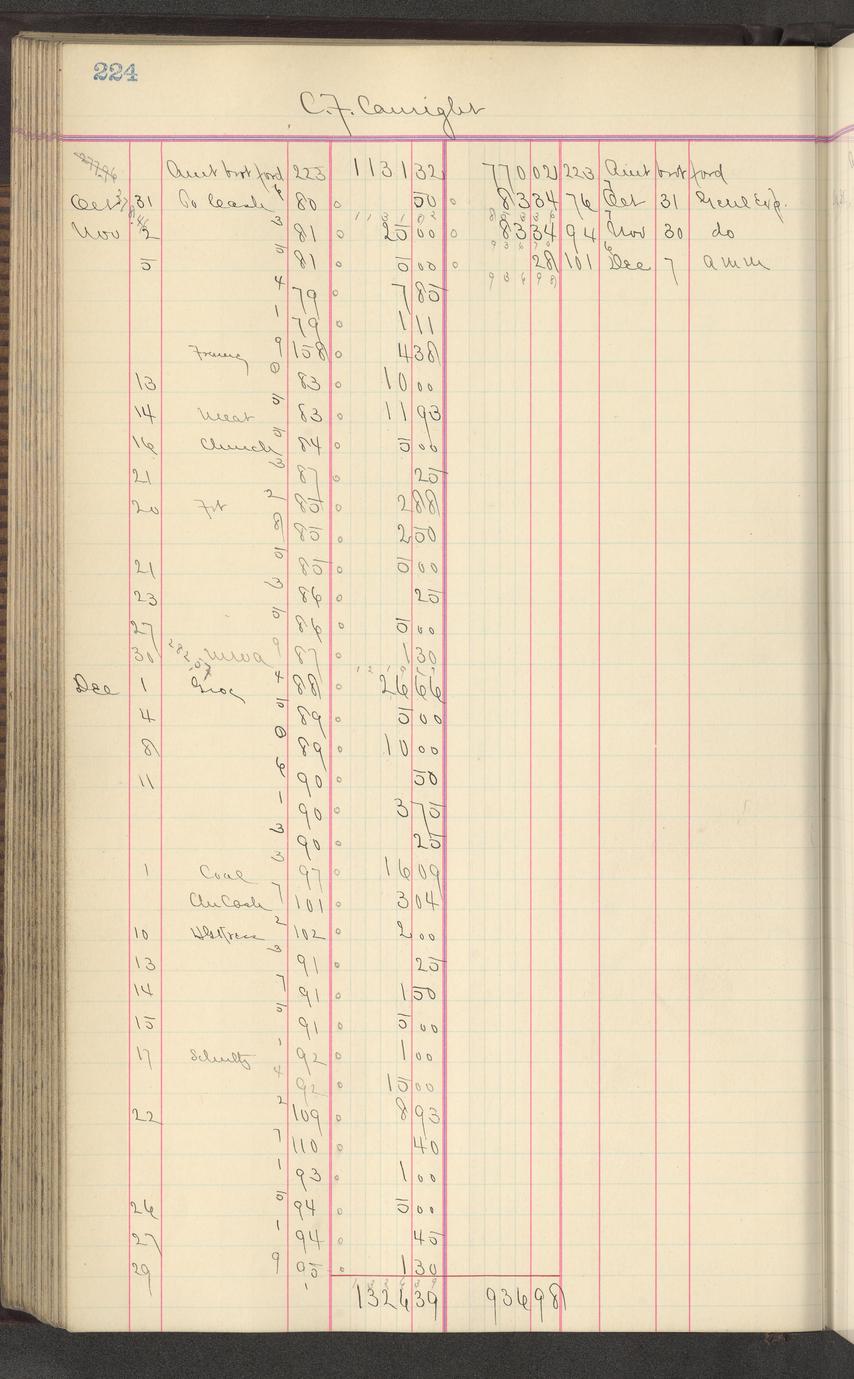 224
C.F. Canright
Amt brot ford 223 1131 32 770 02 223 Amt brot ford
Oct 31 To Cash 6 80 50 83 34 76 7 Oct 31 Genl Exp.
Nov 2 3 81 25 00 83 34 94 7 Nov 30 do
5 5 81 5 00 28 101 6 Dec 7 amm
4 79 7 85
1 79 1 11
9 158 4 38
13 0 83 10 00
14 Meat 5 83 11 93
16 Church 5 84 5 00
21 3 87 25
20 Frt 2 85 2 88
8 85 2 50
21 5 85 5 00
23 3 86 25
27 5 86 5 00
30 9 87 1 30
Dec 1 Groc 4 88 26 66
4 5 89 5 00
8 0 89 10 00
11 6 90 50
1 90 3 75
3 90 25
1 Coal 3 97 16 09
7 101 3 04
10 2 102 2 00
13 3 91 25
14 7 91 1 50
15 5 91 5 00
17 Schultz 1 92 1 00
4 92 15 00
22 2 109 8 93
7 110 40
1 93 1 00
26 5 94 5 00
27 1 94 45
29 9 95 1 30
1326 39 936 98